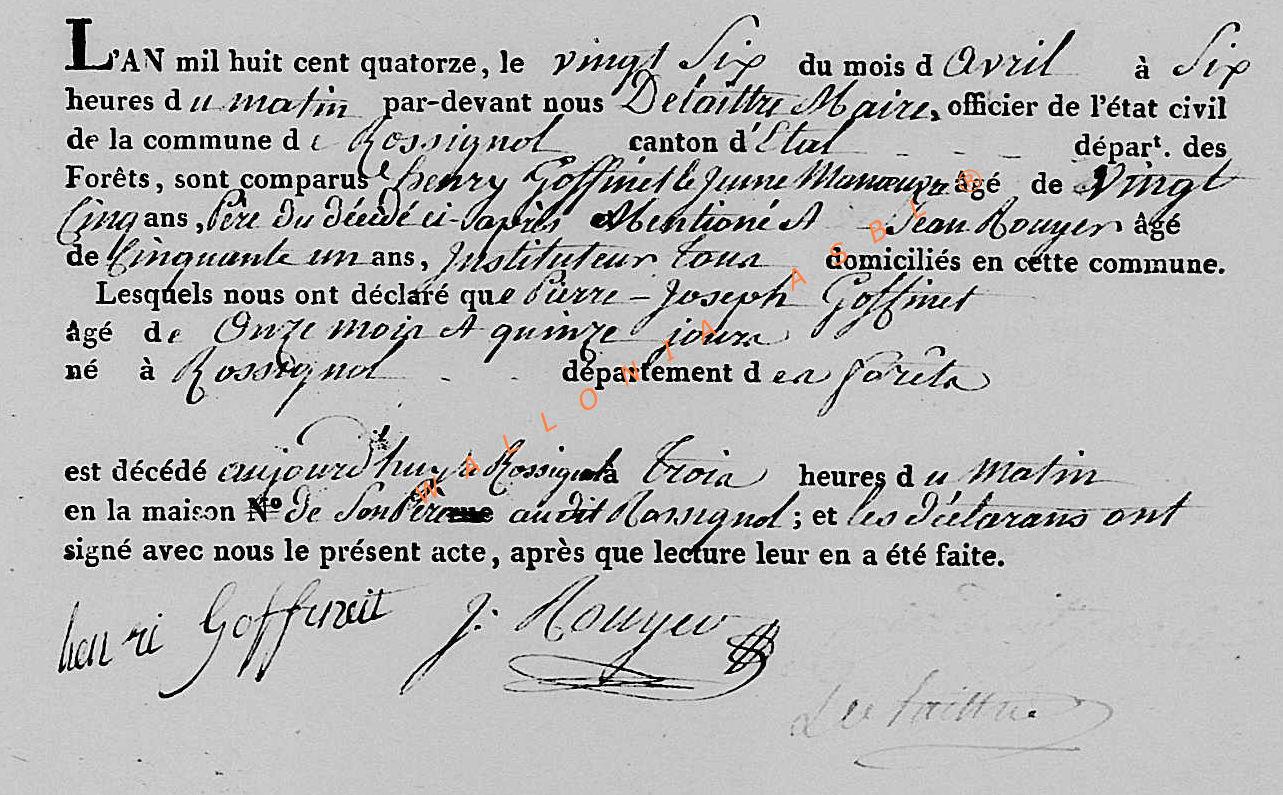 L'AN mil huit cent quatorze, le vingt Six du mois d Avril à Six
heures du matin par-devant nous Delaittre Maire, officier de l'état civil
de la commune de Rossignol canton d'Etal - - - départ. des
Forêts, sont comparus henry Goffinet le Jeune Manœuvre âgé de Vingt
Cinq ans, Père du décédé ci-après Mentioné et Jean Rouyer âgé
de Cinquante un ans, Instituteur tous domiciliés en cette commune.
Lesquels nous ont déclaré que Pierre-Joseph Goffinet
âgé de Onze mois et quinze jours
né à Rossignol - - département des forêts
est décédé aujourd'huy à Rossignol à trois heures du Matin
en la maison N° de Son Père audit Rossignol ; et les déclarans ont
signé avec nous le présent acte, après que lecture leur en a été faite.
henri Goffineit J: Rouyer
Delaittre.
WALLONIA ASBL ®